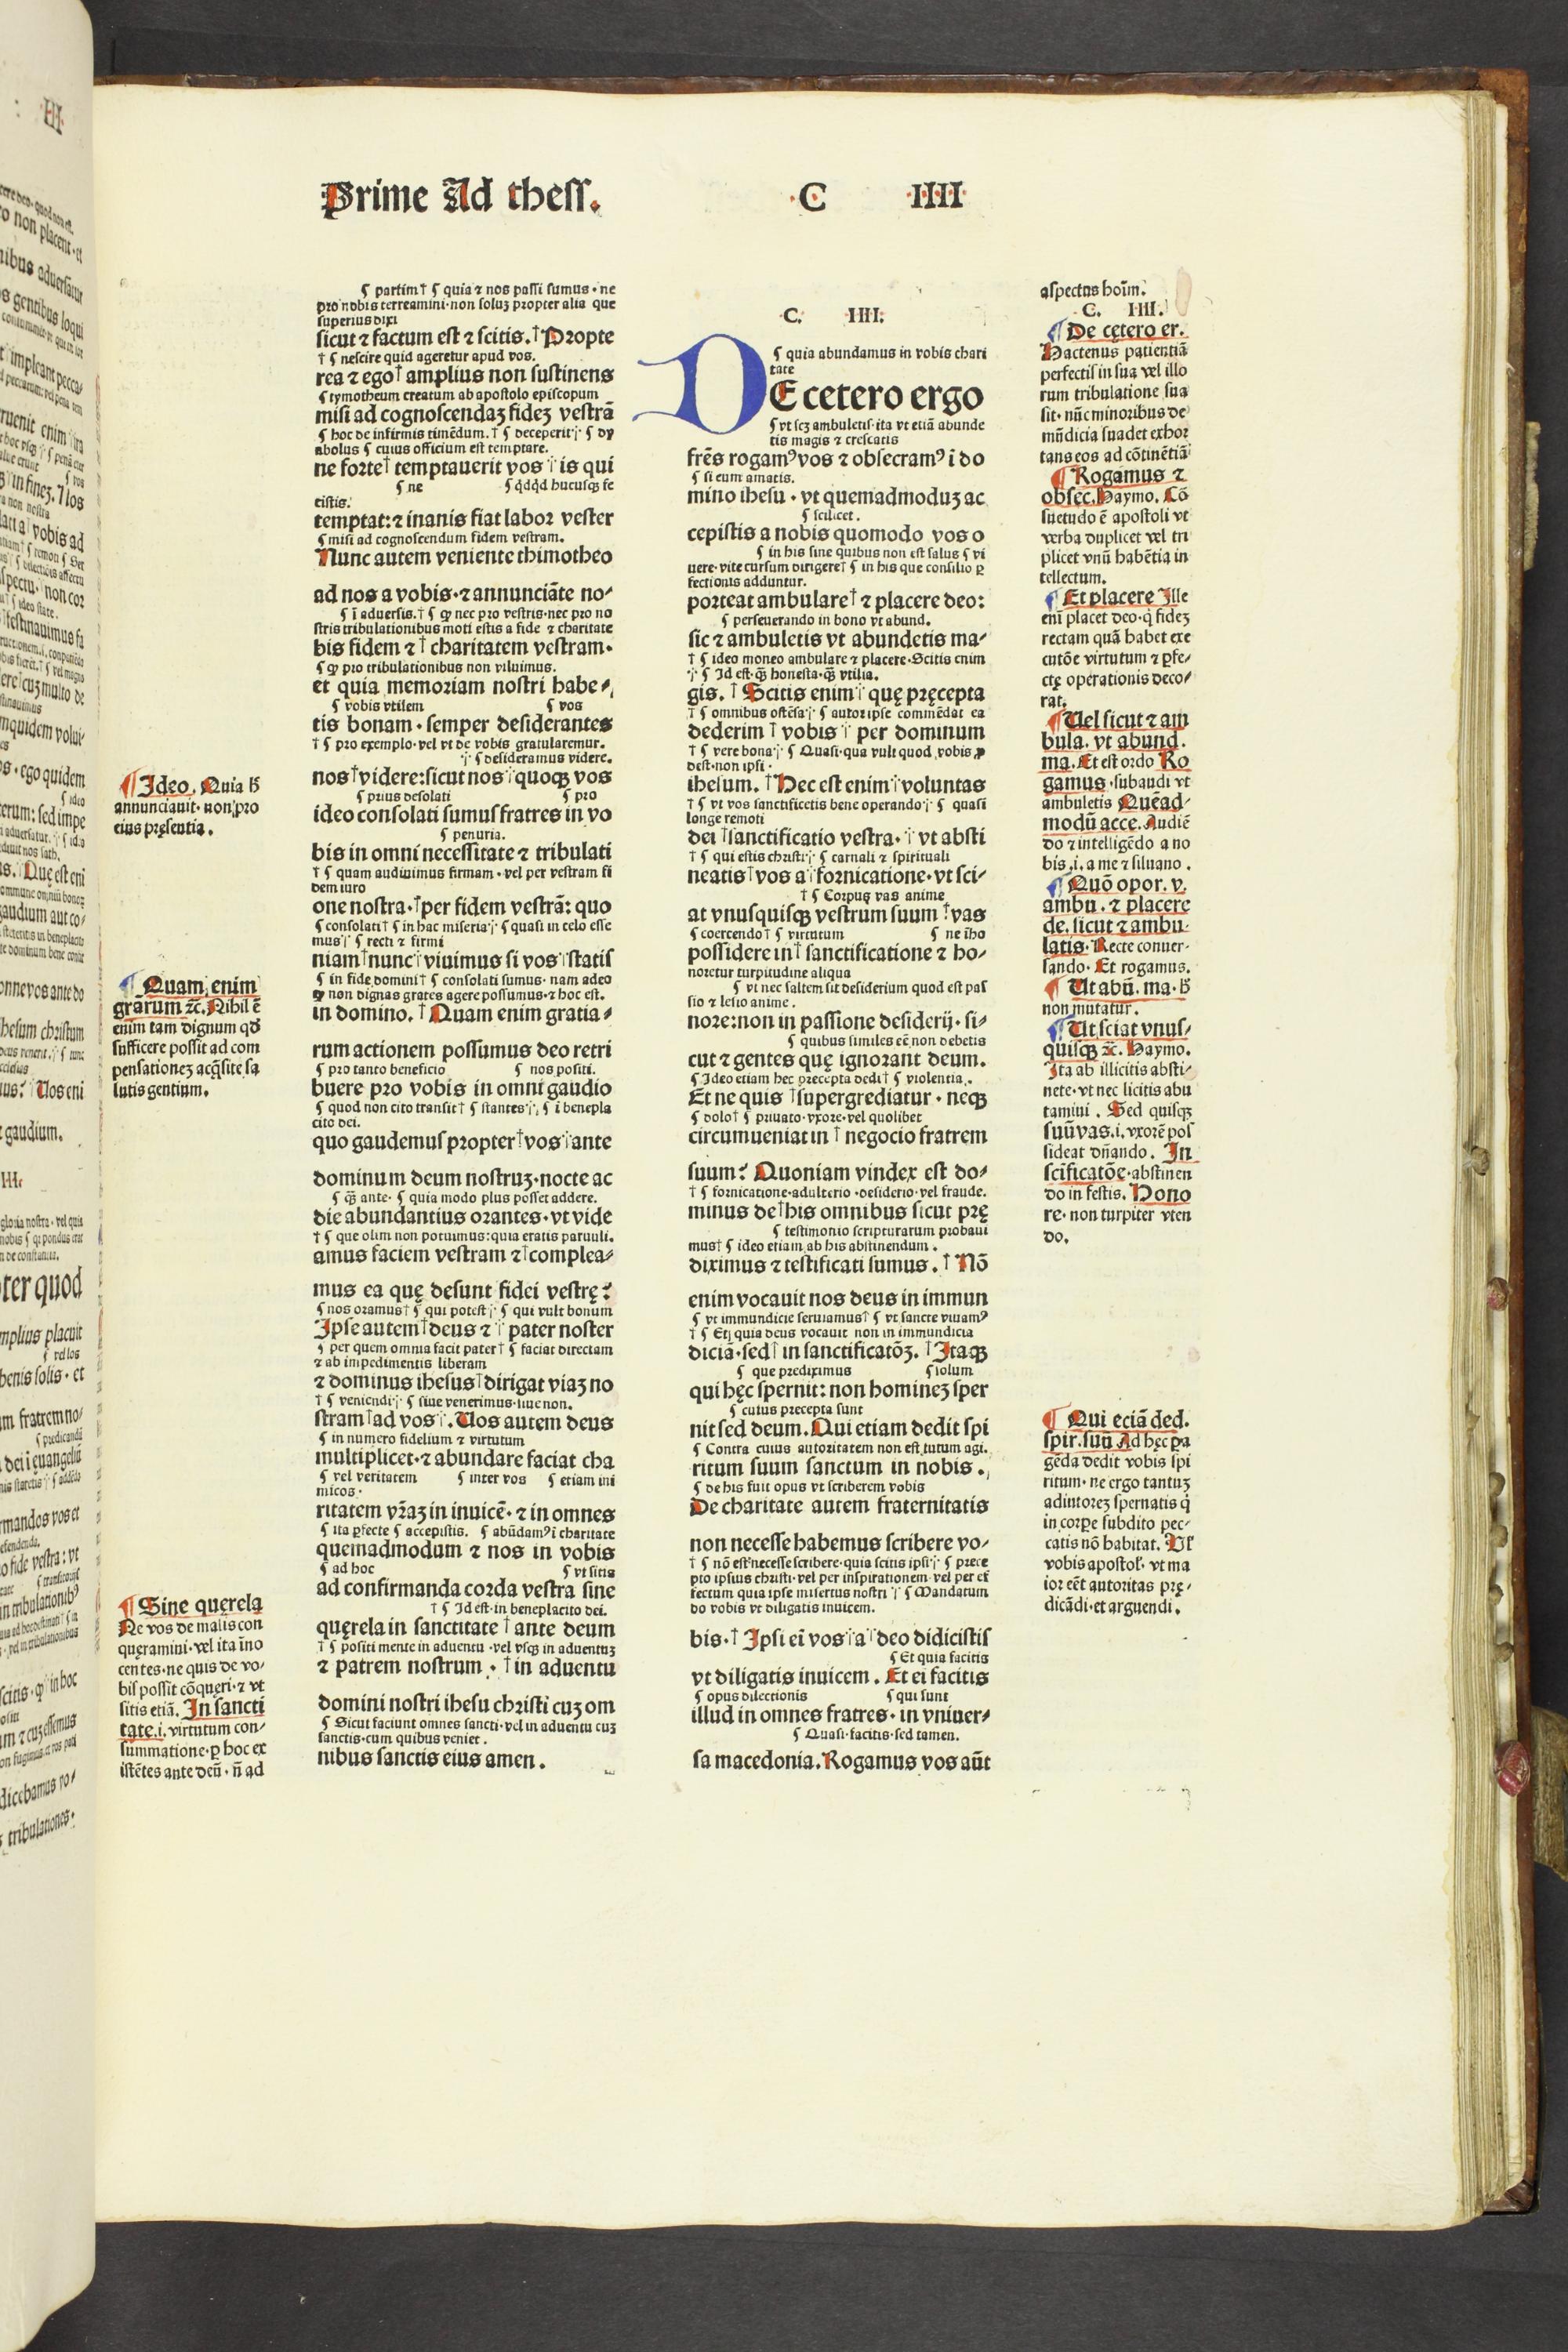 Prime Ad thess. · C · IIII
¶ Ideo. Quia hͦ
annunciauit · non pro
eius pręsentia.
¶ Quam enim
grarum ⁊c̄. Nihil ē
enim tam dignum qd̓
sufficere possit ad com
pensationeꝫ acq̄site sa
lutis gentium.
¶ Sine querela
Ne vos de malis con
queramini · vel ita īno
centes · ne quis de vo⸗
bis possit cōqueri · ⁊ vt
sitis etiā. In sancti
tate .i. virtutum con⸗
summatione · ꝑ hoc ex
istētes ante deū · n̄ ad
¶ partim† ¶ quia ⁊ nos passi sumus · ne
pro nobis terreamini · non soluꝫ propter alia que
superius dixi
sicut ⁊ factum est ⁊ scitis. † Propte
† ¶ nescire quid ageretur apud vos.
rea ⁊ ego† amplius non sustinens
¶ tymotheum creatum ab apostolo episcopum
misi ad cognoscendaꝫ fideꝫ vestrā
¶ hoc de infirmis timēdum. † ¶ deceperit ⁞ ¶ dy
abolus ¶ cuius officium est temptare.
ne forte† temptauerit vos ⁞ is qui
¶ ne ¶ qdqd hucusqꝫ fe
cistis.
temptat: ⁊ inanis fiat labor vester
¶ misi ad cognoscendum fidem vestram.
Nunc autem veniente thimotheo
ad nos a vobis · ⁊ annunciāte no⸗
¶ ī aduersis. † ¶ qꝫ nec pro vestris · nec pro no
stris tribulationibus moti estis a fide ⁊ charitate
bis fidem ⁊ † charitatem vestram ·
¶ qꝫ pro tribulationibus non viluimus.
et quia memoriam nostri habe⸗
¶ vobis vtilem ¶ vos
tis bonam · semper desiderantes
† ¶ pro exemplo · vel vt de vobis gratularemur.
⁞ ¶ desideramus videre.
nos†videre: sicut nos ⁞ quoqꝫ vos
¶ prius desolati ¶ pro
ideo consolati sumus fratres in vo
¶ penuria.
bis in omni necessitate ⁊ tribulati
† ¶ quam audiuimus firmam · vel per vestram fi
dem iuro
one nostra · † per fidem vestrā: quo
¶ consolati† ¶ in hac miseria ⁞ ¶ quasi in celo esse
mus ⁞ ¶ recti ⁊ firmi
niam† nunc ⁞ viuimus si vos ⁞ statis
¶ in fide domini† ¶ consolati sumus · nam adeo
qꝫ non dignas grates agere possumus · ⁊ hoc est.
in domino. † Quam enim gratia⸗
rum actionem possumus deo retri
¶ pro tanto beneficio ¶ nos positi.
buere pro vobis in omni gaudio
¶ quod non cito transit† ¶ stantes ⁞ ¶ i benepla
cito dei.
quo gaudemus propter† vos ⁞ ante
dominum deum nostruꝫ · nocte ac
¶ qꝫ ante · ¶ quia modo plus posset addere.
die abundantius orantes · vt vide
† ¶ que olim non potuimus: quia eratis paruuli.
amus faciem vestram ⁊ † complea⸗
mus ea quę desunt fidei vestrę?
¶ nos oramus† ¶ qui potest ⁞ ¶ qui vult bonum
Ipse autem† deus ⁊ ⁞ pater noster
¶ per quem omnia facit pater† ¶ faciat directam
⁊ ab impedimentis liberam
⁊ dominus ihesus† dirigat viaꝫ no
† ¶ veniendi ⁞ ¶ siue venerimus · siue non.
stram† ad vos ⁞. Uos autem deus
¶ in numero fidelium ⁊ virtutum
multiplicet · ⁊ abundare faciat cha
¶ vel veritatem ¶ inter vos ¶ etiam ini
micos ·
ritatem vr̄aꝫ in inuicē · ⁊ in omnes
¶ ita ꝑfecte ¶ accepistis. ¶ abūdamꝰ i charitate
quemadmodum ⁊ nos in vobis
¶ ad hoc ¶ vt sitis
ad confirmanda corda vestra sine
† ¶ Id est · in beneplacito dei.
querela in sanctitate † ante deum
† ¶ positi mente in aduentu · vel vsqꝫ in aduentuꝫ
⁊ patrem nostrum · † in aduentu
domini nostri ihesu christi cuꝫ om
¶ Sicut faciunt omnes sancti · vel in aduentu cuꝫ
sanctis · cum quibus veniet.
nibus sanctis eius amen.
C. IIII.
¶ quia abundamus in vobis chari
tate
DE cetero ergo
¶ vt scꝫ ambuletis · ita vt etiā abunde
tis magis ⁊ crescatis
frēs rogamꝰ vos ⁊ obsecramꝰ i do
¶ si eum amatis.
mino ihesu · vt quemadmoduꝫ ac
¶ scilicet.
cepistis a nobis quomodo vos o
¶ in his sine quibus non est salus ¶ vi
uere · vite cursum dirigere† ¶ in his que consilio ꝑ
fectionis adduntur.
porteat ambulare† ⁊ placere deo:
¶ perseuerando in bono vt abund.
sic ⁊ ambuletis vt abundetis ma⸗
† ¶ ideo moneo ambulare ⁊ placere · Scitis enim
⁞ ¶ Id est · qꝫ honesta · qꝫ vtilia.
gis. † Scitis enim ⁞ quę pręcepta
† ¶ omnibus ostēsa ⁞ ¶ autor ipse commēdat ea
dederim † vobis ⁞ per dominum
† ¶ vere bona ⁞ ¶ Quasi · qua vult quod vobis ꝓ
dest · non ipsi ·
ihesum. † Hec est enim ⁞ voluntas
† ¶ vt vos sanctificetis bene operando ⁞ ¶ quasi
longe remoti
dei † sanctificatio vestra · ⁞ vt absti
† ¶ qui estis christi ⁞ ¶ carnali ⁊ spirituali
neatis† vos a ⁞ fornicatione · vt sci⸗
† ¶ Corpus vas anime
at vnusquisqꝫ vestrum suum † vas
¶ coercendo† ¶ virtutum ¶ ne īho
possidere in† sanctificatione ⁊ ho⸗
noretur turpitudine aliqua
¶ vt nec saltem sit desiderium quod est pas
sio ⁊ lesio anime.
nore: non in passione desiderij · si⸗
¶ quibus similes eē non debetis
cut ⁊ gentes quę ignorant deum.
¶ Ideo etiam hec precepta dedi† ¶ violentia.
Et ne quis † supergrediatur · neqꝫ
¶ dolo† ¶ priuato · vxore · vel quolibet
circumueniat in † negocio fratrem
suum? Quoniam vindex est do⸗
† ¶ fornicatione · adulterio · desiderio · vel fraude.
minus de† his omnibus sicut prę
¶ testimonio scripturarum probaui
mus† ¶ ideo etiam ab his abstinendum.
diximus ⁊ testificati sumus. † Nō
enim vocauit nos deus in immun
¶ vt immundicie seruiamus† ¶ vt sancte viuamꝰ
† ¶ Et quia deus vocauit non in immundicia
diciā · sed† in sanctificatōꝫ. † Itaqꝫ
¶ que prediximus ¶ solum
qui hęc spernit: non homineꝫ sper
¶ cuius precepta sunt
nit sed deum. Qui etiam dedit spi
¶ Contra cuius autoritatem non est tutum agi.
ritum suum sanctum in nobis.
¶ de his fuit opus vt scriberem vobis
De charitate autem fraternitatis
non necesse habemus scribere vo⸗
† ¶ nō est necesse scribere · quia scitis ipsi ⁞ ¶ prece
pto ipsius christi · vel per inspirationem · vel per ef
fectum quia ipse misertus nostri ⁞ ¶ Mandatum
do vobis vt diligatis inuicem.
bis · † Ipsi ei vos ⁞ a ⁞ deo didicistis
¶ Et quia facitis
vt diligatis inuicem. Et ei facitis
¶ opus dilectionis ¶ qui sunt
illud in omnes fratres · in vniuer⸗
¶ Quasi · facitis · sed tamen.
sa macedonia. Rogamus vos aūt
aspectus hoīm.
C. IIII.
¶ De cętero er.
Hactenus patientiā
perfectis in sua vel illo
rum tribulatione sua
sit · nūc minoribus de
mūdicia suadet exhor
tans eos ad cōtinētiā
¶ Rogamus ⁊
obsec. Haymo. Cō
suetudo ē apostoli vt
verba duplicet vel tri
plicet vnū habētia in
tellectum.
¶ Et placere Ille
eni placet deo · q̄ fideꝫ
rectam quā habet exe
cutōe virtutum ⁊ ꝑfe⸗
ctę operationis deco⸗
rat.
¶ Uel sicut ⁊ am
bula. vt abund.
ma. Et est ordo Ro
gamus · subaudi vt
ambuletis Quēad⸗
modū acce. Audiē
do ⁊ intelligēdo a no
bis .i. a me ⁊ siluano.
¶ Quō opor. v.
ambu. ⁊ placere
de. sicut ⁊ ambu.
latis. Recte conuer⸗
sando. Et rogamus.
¶ Ut abū. ma. hͦ
non mutatur.
¶ Ut sciat vnus⸗
quisqꝫ ⁊c̄. Haymo.
Ita ab illicitis absti⸗
nete · vt nec licitis abu
tamini. Sed quisqꝫ
suū vas .i. vxorē pos
sideat dn̄ando. In
scīficatōe · abstinen
do in festis. Hono
re · non turpiter vten
do.
¶ Qui eciā ded.
spir. suū Ad hęc pa
gēda dedit vobis spi
ritum · ne ergo tantuꝫ
adiutoreꝫ spernatis q̇
in corꝑe subdito pec⸗
catis nō habitat. Uł
vobis apostoł · vt ma
ior eēt autoritas prę⸗
dicādi · et arguendi.